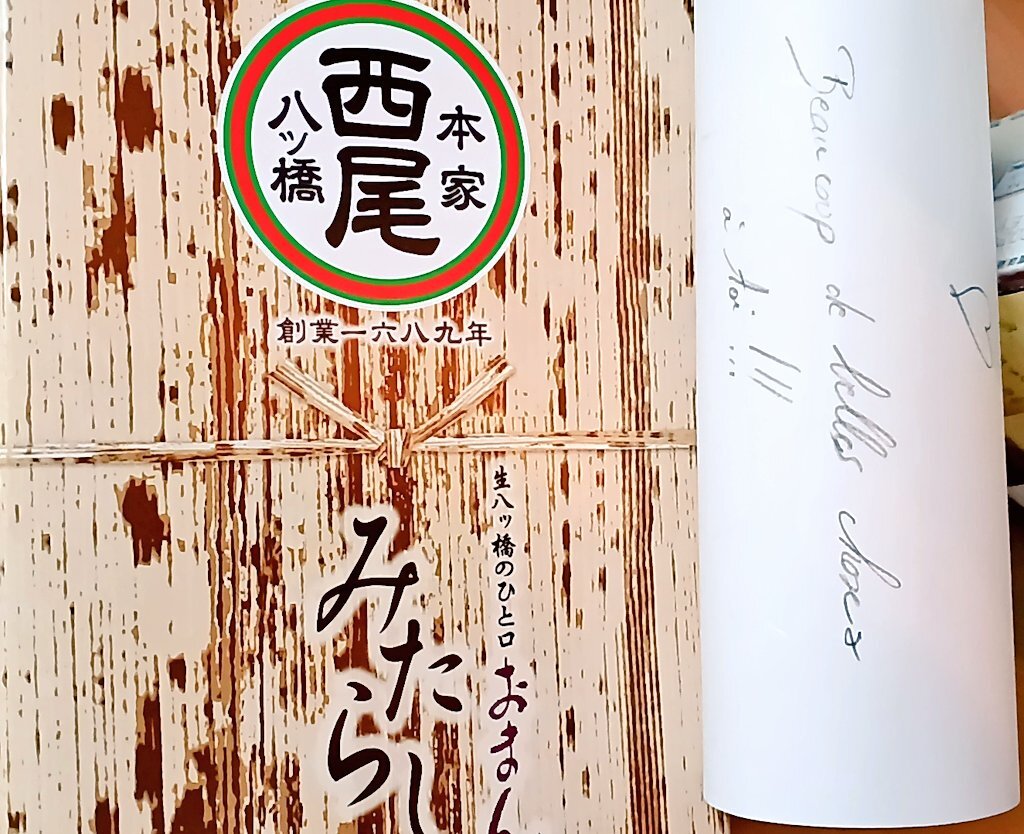 本家
西尾
八ッ橋
創業一六八九年
生八ッ橋のひと口
おまん
みたらし
Beaucoup de belles choses
à toi ... !!!